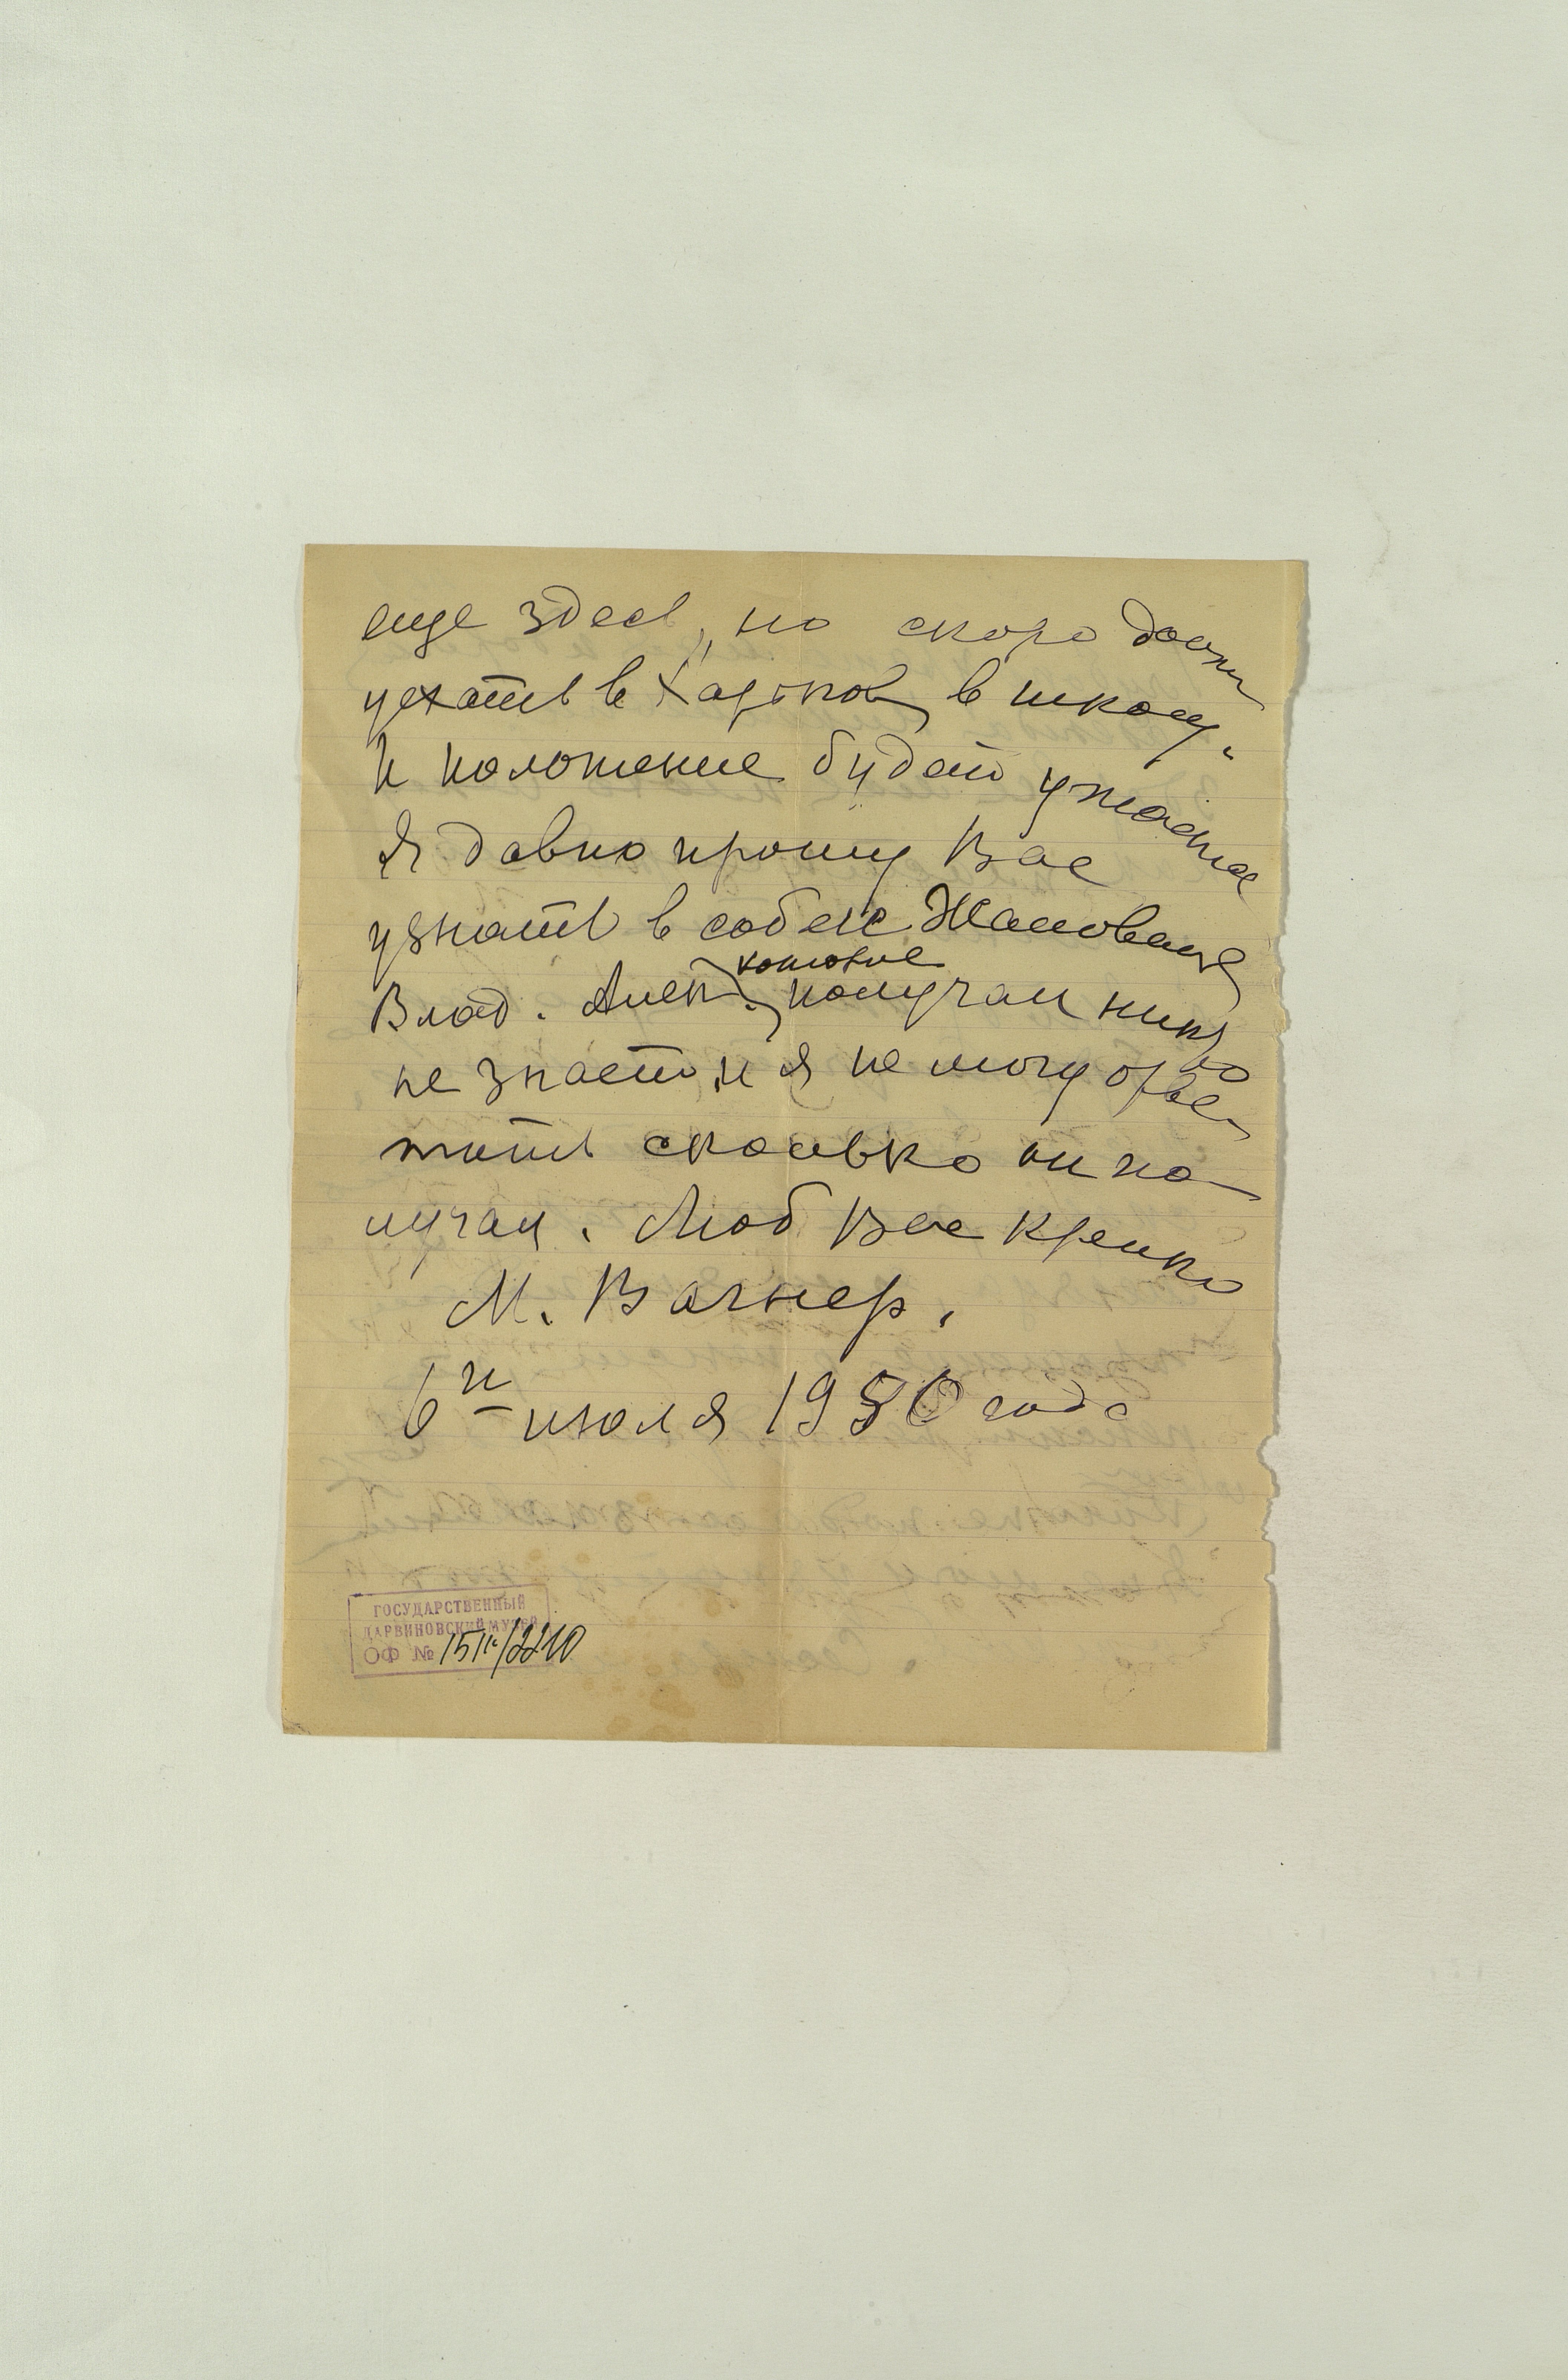 еще здесь, но скоро должн
уехать в Харьков, в школу.
И положение будет ужасное
Я давно прошу Вас
узнать в собесе Жалованье
Влад. Алек. которое получал никто
не знает, и я не могу отве
тить сколько он по
лучал. Люб Вас крепко
М. Вагнер.
6го июля 1950 года
ГОСУДАРСТВЕННЫЙ
ДАРВИНОВСКИЙ МУЗЕЙ
ОФ №15111/2210